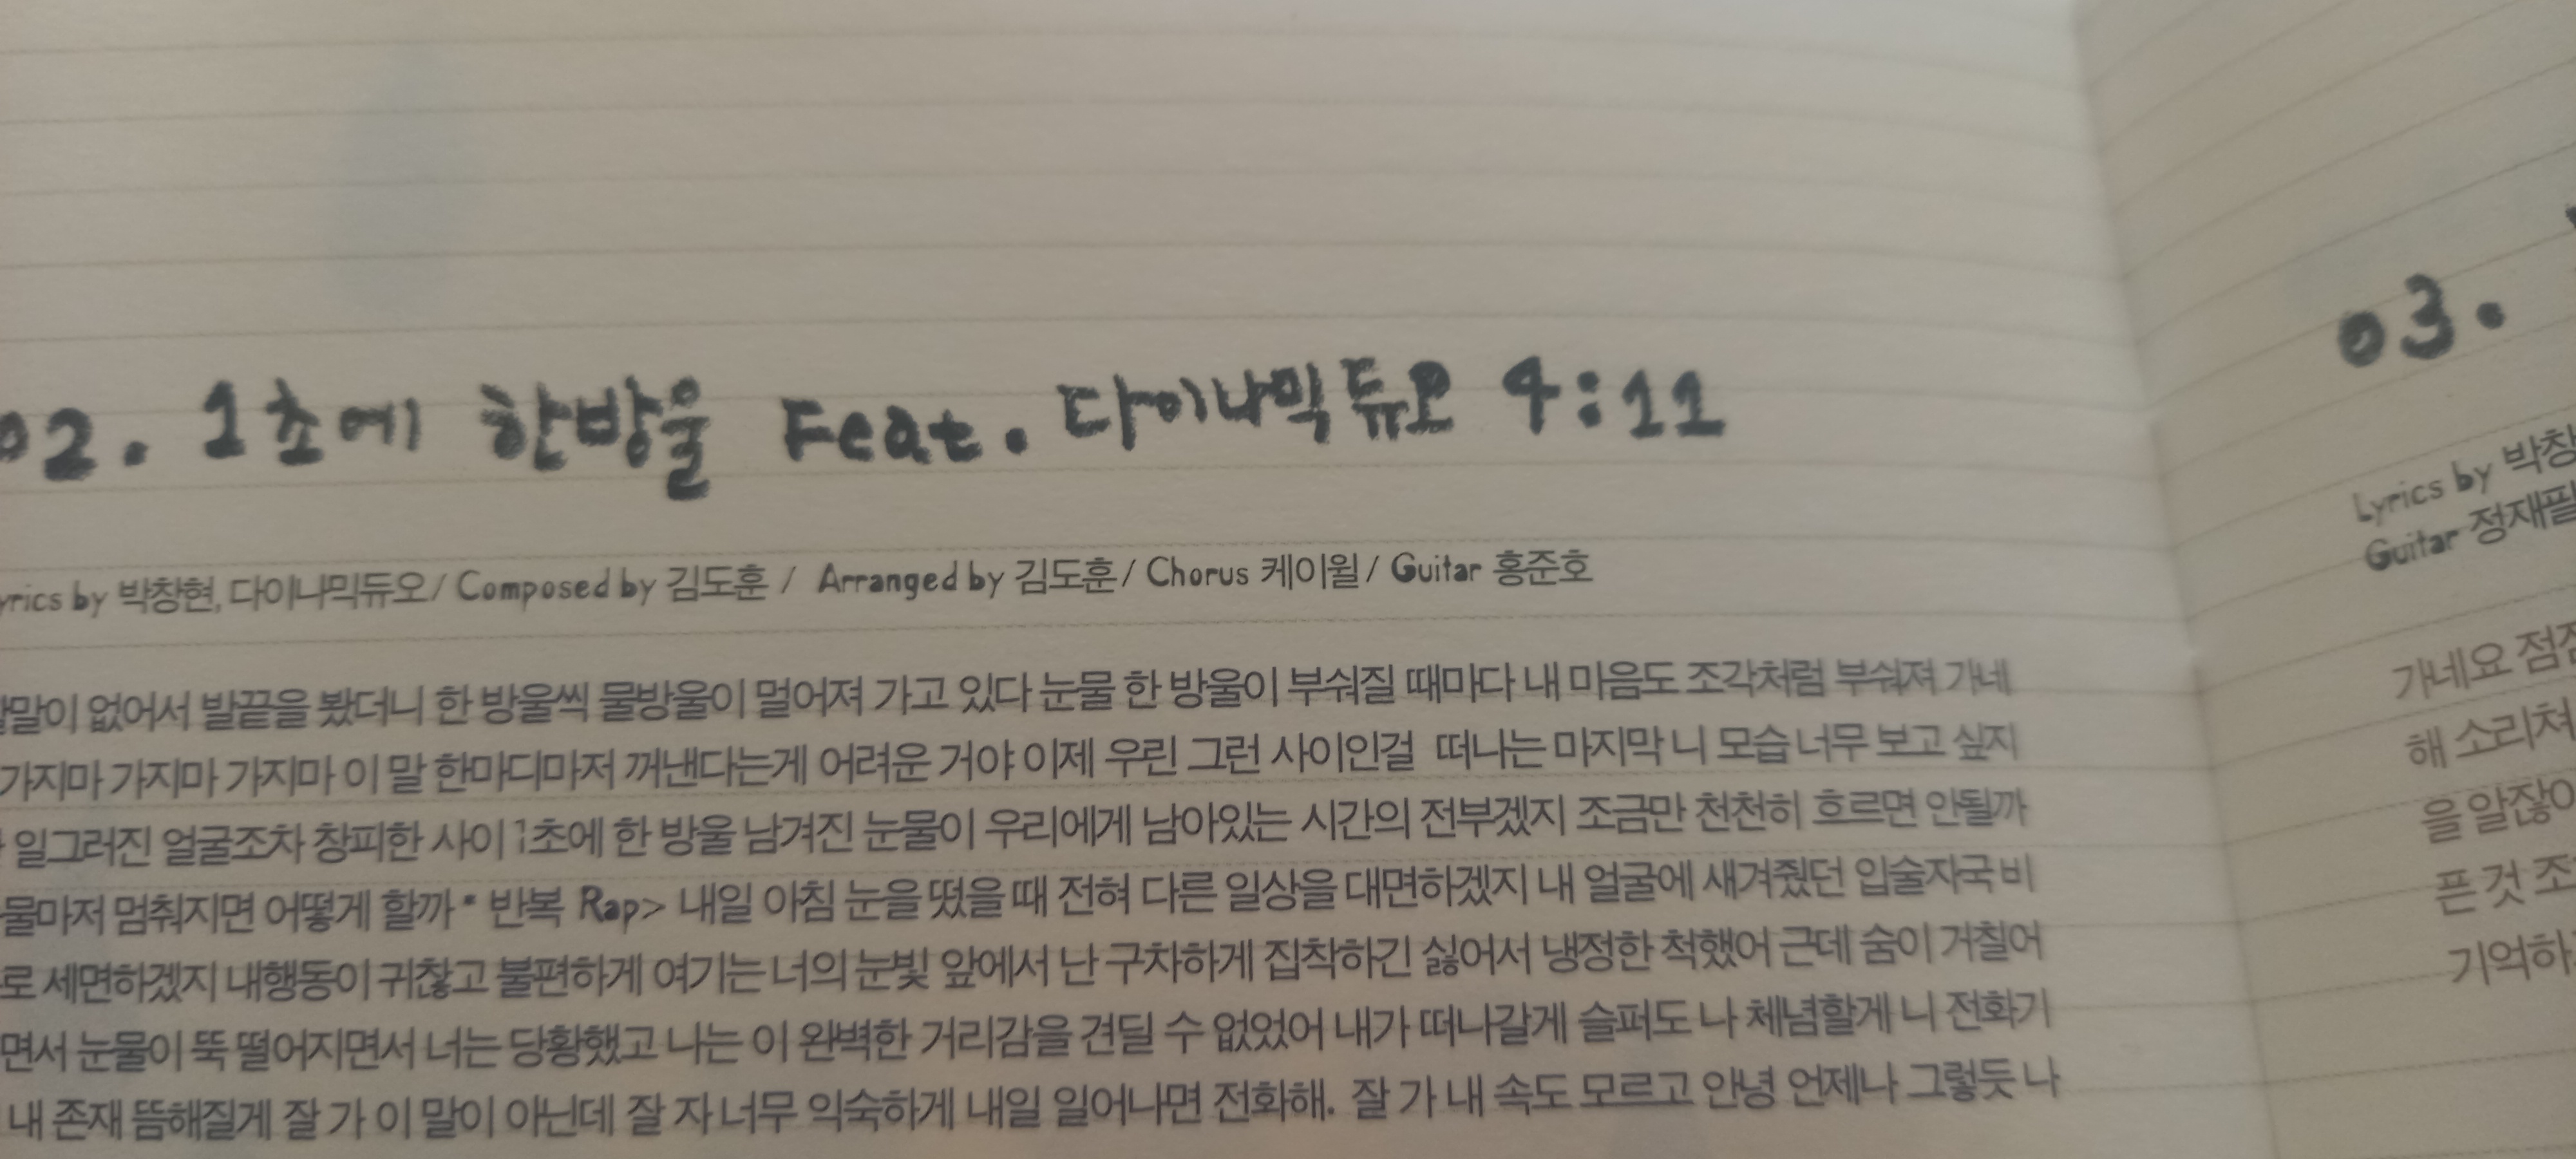 02. 1초에 한방울 Feat. 다이나믹듀오 4:11
Lyrics by 박창현, 다이나믹듀오 / Composed by 김도훈 / Arranged by 김도훈 / Chorus 케이윌 / Guitar 홍준호
없어서 발끝을 봤더니 한 방울씩 물방울이 멀어져 가고 있다 눈물 한 방울이 부숴질 때마다 내 마음도 조각처럼 부숴져 가네
가지마 가지마 가지마 이 말 한마디마저 꺼낸다는게 어려운 거야 이제 우린 그런 사이인걸 떠나는 마지막 니 모습 너무 보고 싶지
일그러진 얼굴조차 창피한 사이 1초에 한 방울 남겨진 눈물이 우리에게 남아있는 시간의 전부겠지 조금만 천천히 흐르면 안될까
물마저 멈춰지면 어떻게 할까 * 반복 Rap> 내일 아침 눈을 떴을 때 전혀 다른 일상을 대면하겠지 내 얼굴에 새겨줬던 입술자국 비
로 세면하겠지 내행동이 귀찮고 불편하게 여기는 너의 눈빛 앞에서 난 구차하게 집착하긴 싫어서 냉정한 척했어 근데 숨이 거칠어
면서 눈물이 뚝 떨어지면서 너는 당황했고 나는 이 완벽한 거리감을 견딜 수 없었어 내가 떠나갈게 슬퍼도 나 체념할게 니 전화기
내 존재 뜸해질게 잘 가 이 말이 아닌데 잘 자 너무 익숙하게 내일 일어나면 전화해. 잘 가 내 속도 모르고 안녕 언제나 그렇듯 나
03.
Lyrics by
Guitar 정재필
가네요
해 소리쳐
을 알잖아
픈 것